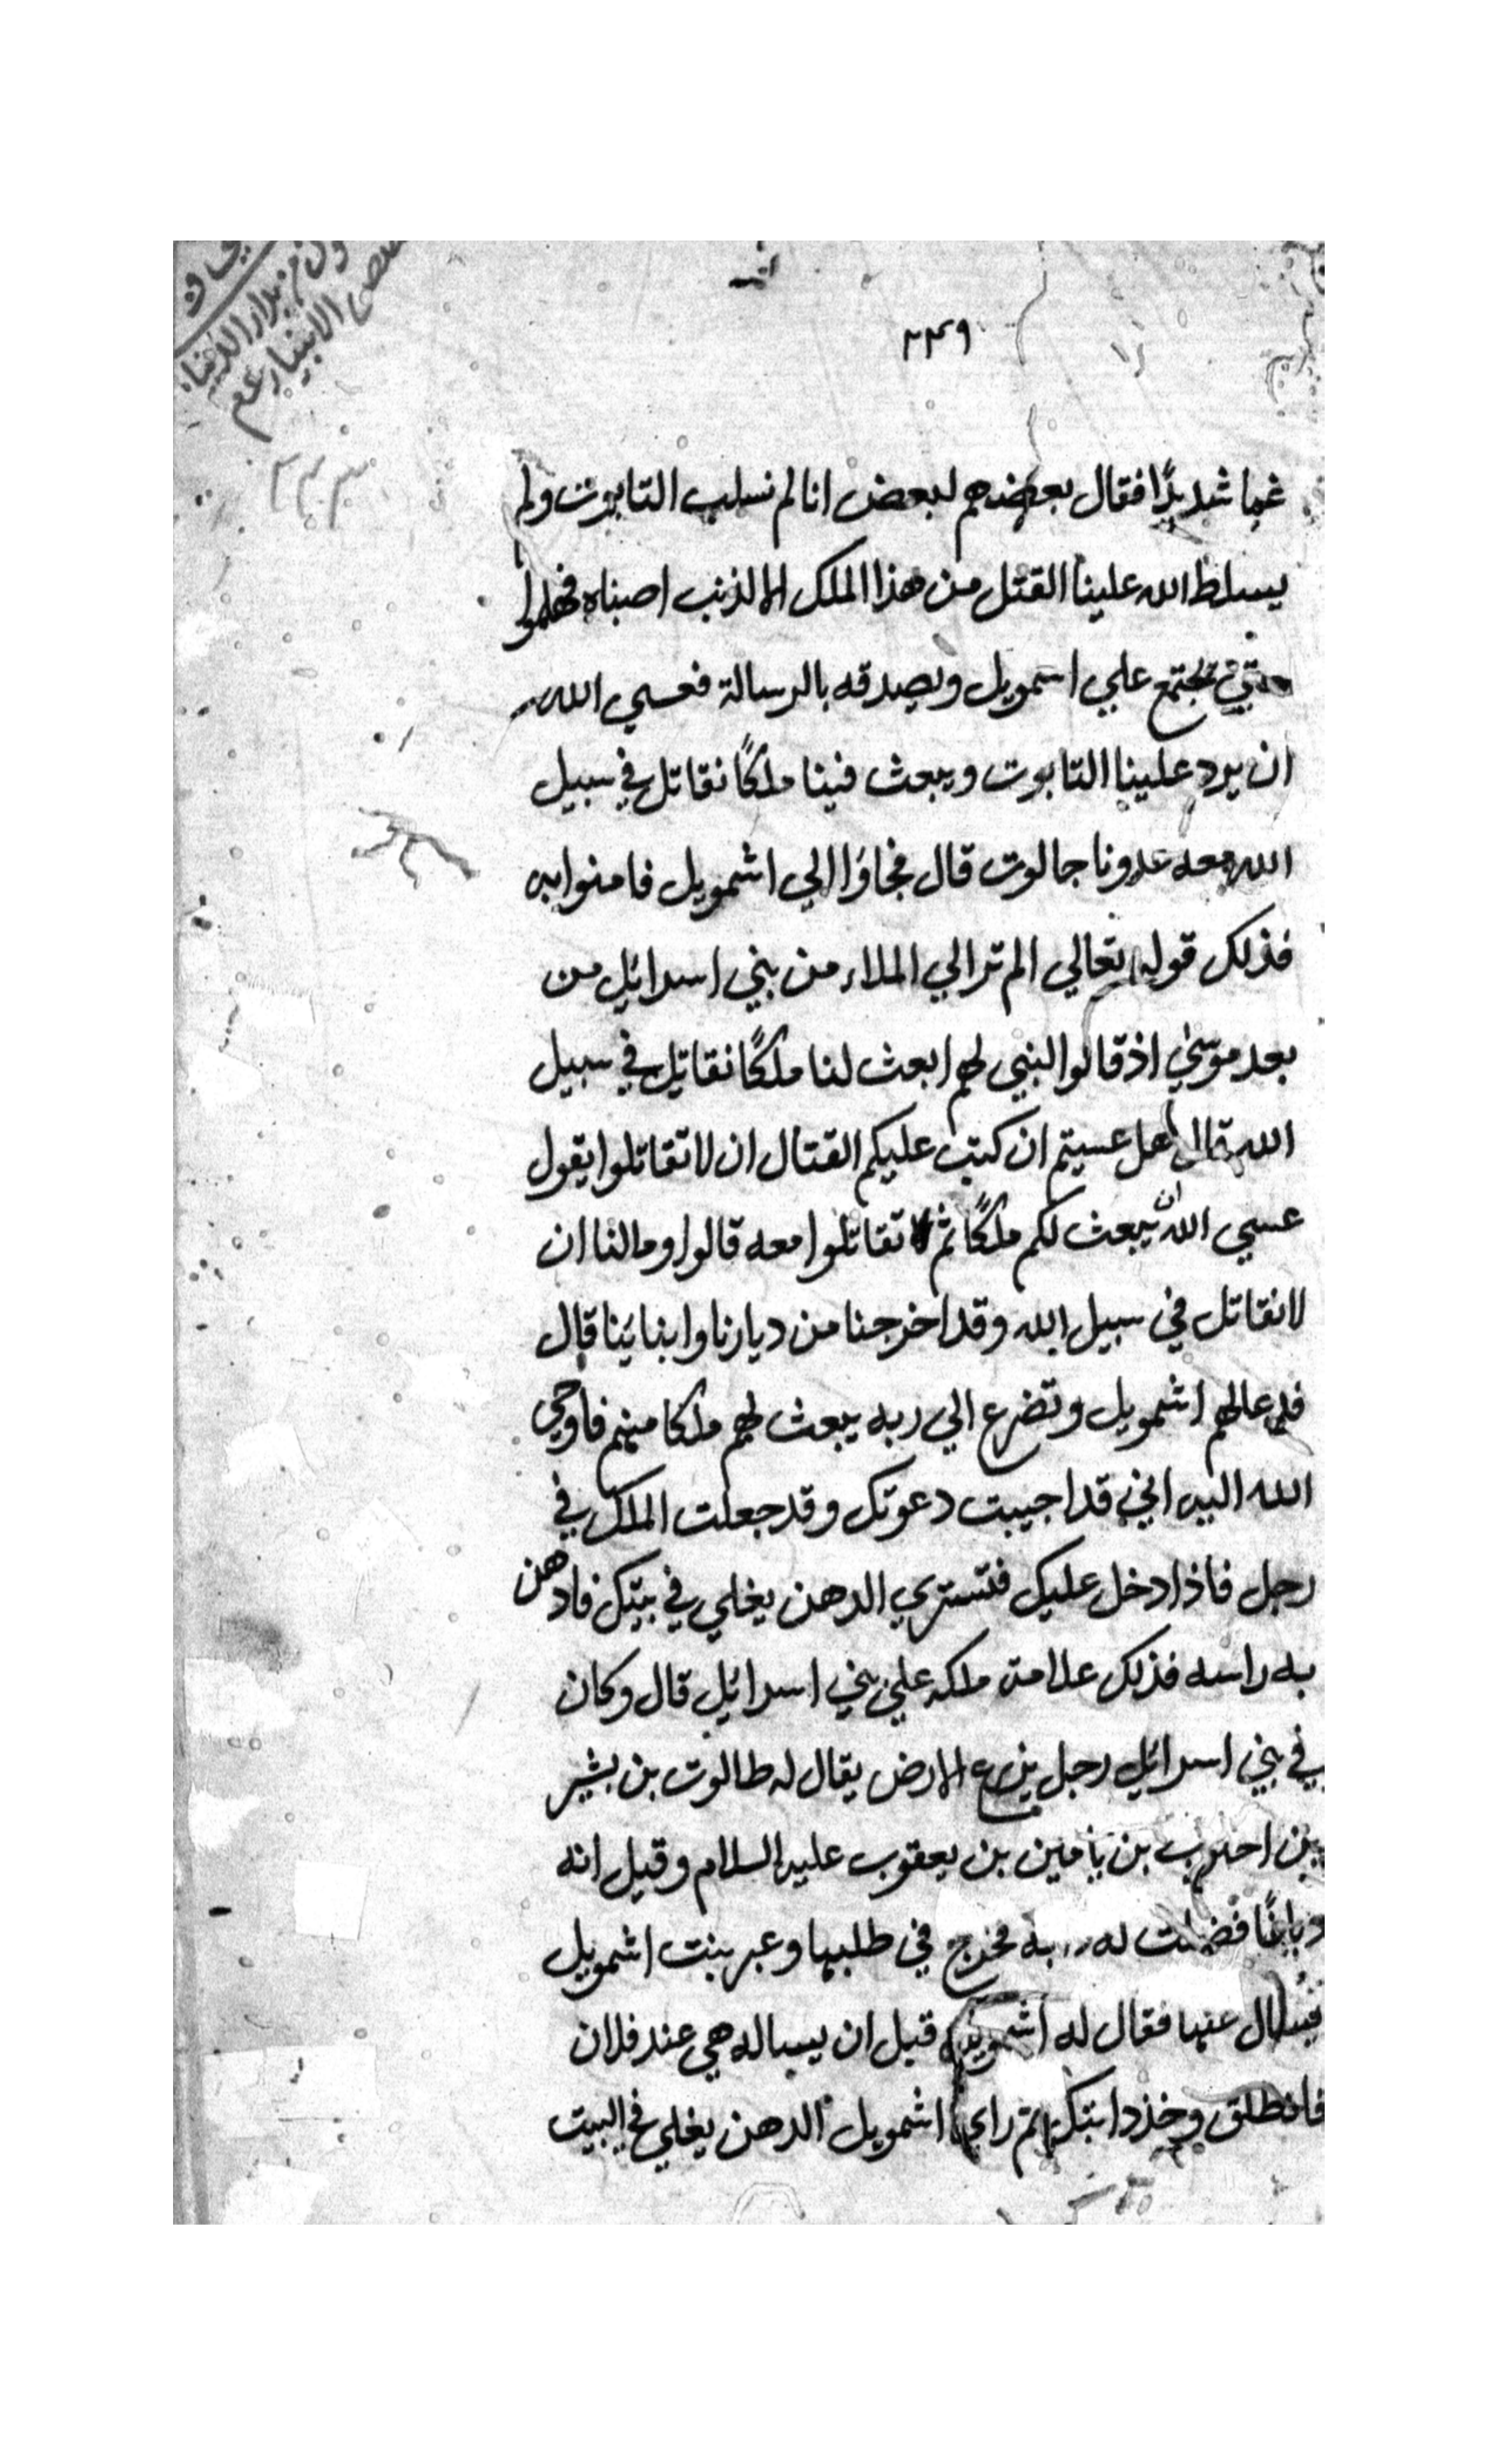 ٢٣٩
غما شديدًا فقال بعضهم لبعض انا لم نسلب التابوت ولم
يسلط الله علينا القتل من هذا الملك الا لذنب اصبناه فهلموا
حتي نجتمع علي اشمويل ونصدقه بالرسالة فعسي الله
ان يرد علينا التابوت ويبعث فينا ملكًا نقاتل في سبيل
الله معه عدونا جالوت قال فجاؤا الي اشمويل فامنوا به
فذلك قوله تعالي الم تر الي الملاء من بني اسرائيل من
بعد موسي اذ قالوا لنبي لهم ابعث لنا ملكًا نقاتل في سبيل
الله قال هل عسيتم ان كتب عليكم القتال ان لا تقاتلوا يقول
عسي الله ان يبعث لكم ملكًا ثم لا تقاتلوا معه قالوا وما لنا ان
لا نقاتل في سبيل الله وقد اخرجنا من ديارنا وابنائنا قال
فدعا لهم اشمويل وتضرع الي ربه يبعث لهم ملكا منهم فاوحي
الله اليه اني قد اجيبت دعوتك وقد جعلت الملك في
رجل فاذا دخل عليك فتستري الدهن يغلي في بيتك فادهن
به راسه فذلك علامة ملكه علي بني اسرائيل قال وكان
في بني اسرائيل رجل يزرع الارض يقال له طالوت بن بشير
بن بن يامين بن يعقوب عليه السلام وقيل انه
دباغًا فضلت له فخرج في طلبها وعبر بنت اشمويل
فيسال عنها فقال له اشمويل قبل ان يساله هي عند فلان
فانطلق وخذ دابتك ثم راي اشمويل الدهن يغلي في البيت